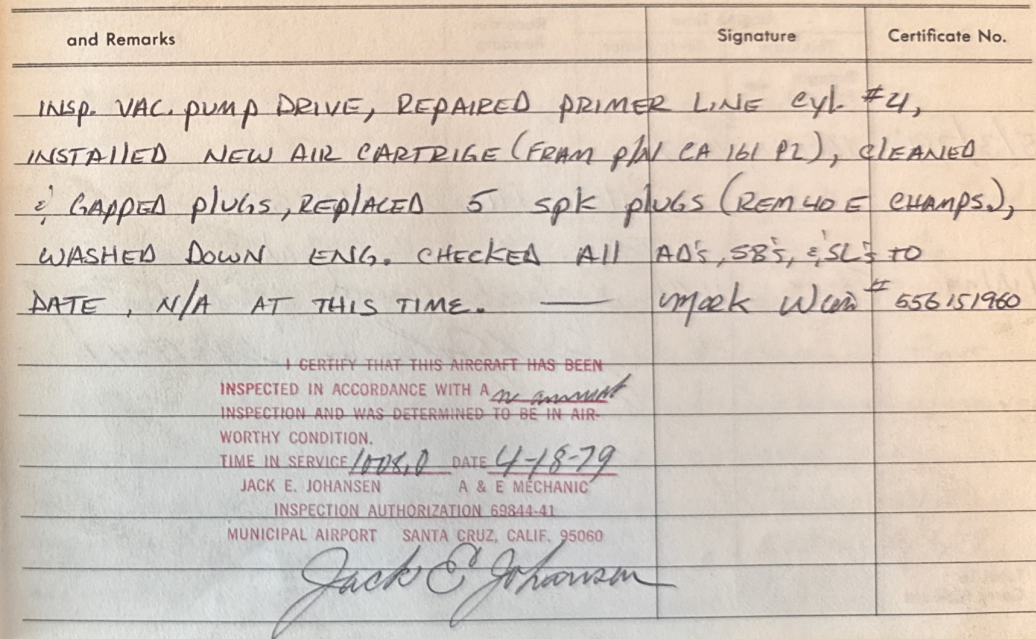 and Remarks Signature Certificate No.
INSP. VAC. PUMP DRIVE, REPAIRED PRIMER LINE CYL #4,
INSTALLED NEW AIR CARTRIGE (FRAM P/N CA 161 PL), CLEANED
& GAPPED PLUGS, REPLACED 5 SPK PLUGS (REM 40 E CHAMPS.),
WASHED DOWN ENG. CHECKED ALL AD's, SB's, & SL's TO
DATE, N/A AT THIS TIME. — Mark # 556151960
I CERTIFY THAT THIS AIRCRAFT HAS BEEN
INSPECTED IN ACCORDANCE WITH A n annual
INSPECTION AND WAS DETERMINED TO BE IN AIR-
WORTHY CONDITION.
TIME IN SERVICE 1008.0 DATE 4-18-79
JACK E. JOHANSEN A & E MECHANIC
INSPECTION AUTHORIZATION 69844-41
MUNICIPAL AIRPORT SANTA CRUZ, CALIF. 95060
Jack E Johansen